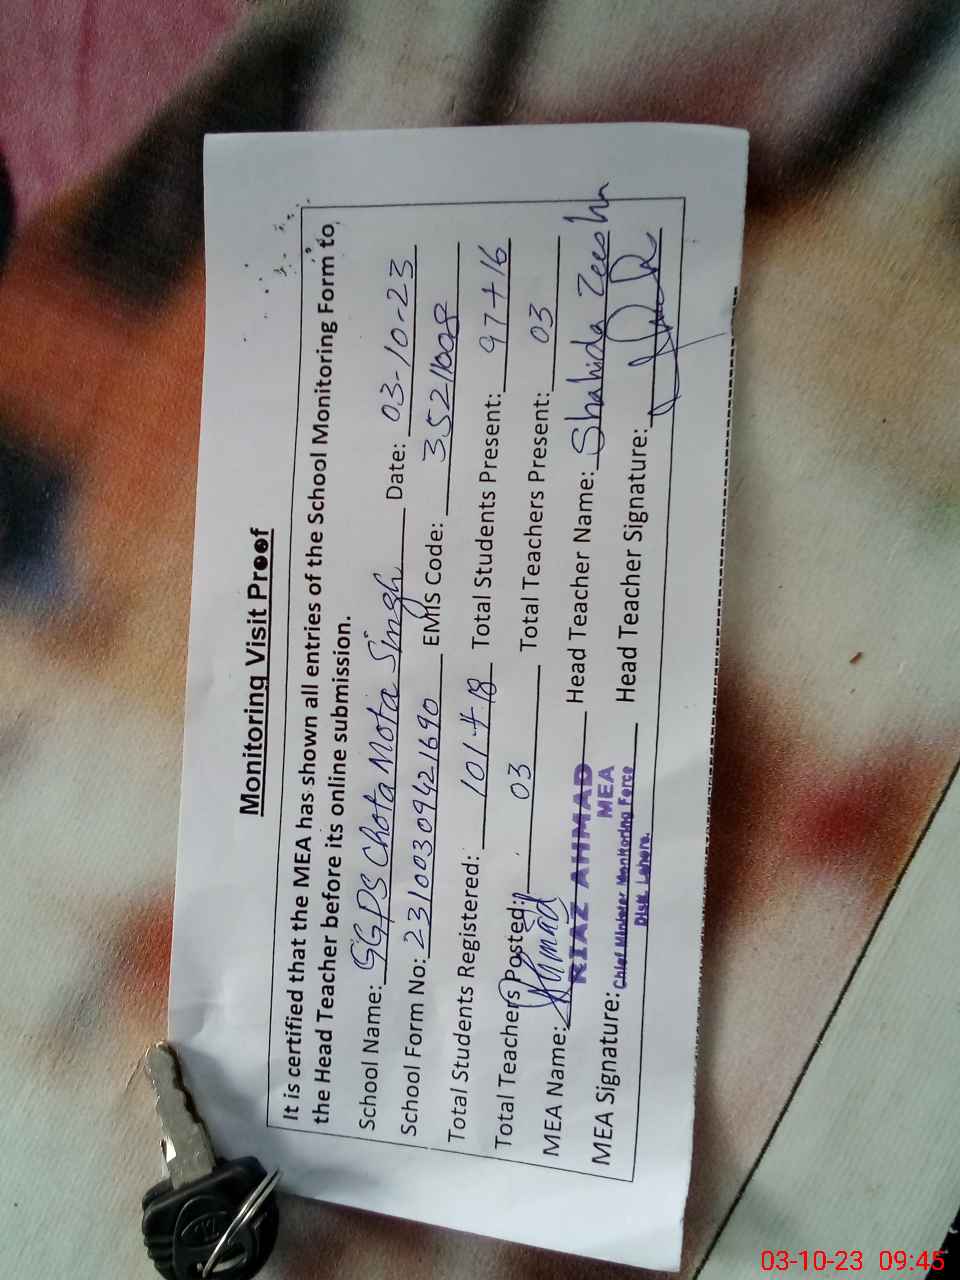 Monitoring Visit Proof
It is certified that the MEA has shown all entries of the School Monitoring Form to
the Head Teacher before its online submission.
School Name: GGPS Chota Mota Singh Date: 03-10-23
School Form No: 23100309421690 EMIS Code: 35211008
Total Students Registered: 101+18 Total Students Present: 97+16
Total Teachers Posted: 03 Total Teachers Present: 03
MEA Name: RIAZ AHMAD Head Teacher Name: Shahida Zeeshn
MEA
MEA Signature: Chief Minister Monitoring Force Head Teacher Signature:
Distt. Lahore.
03-10-23 09:45